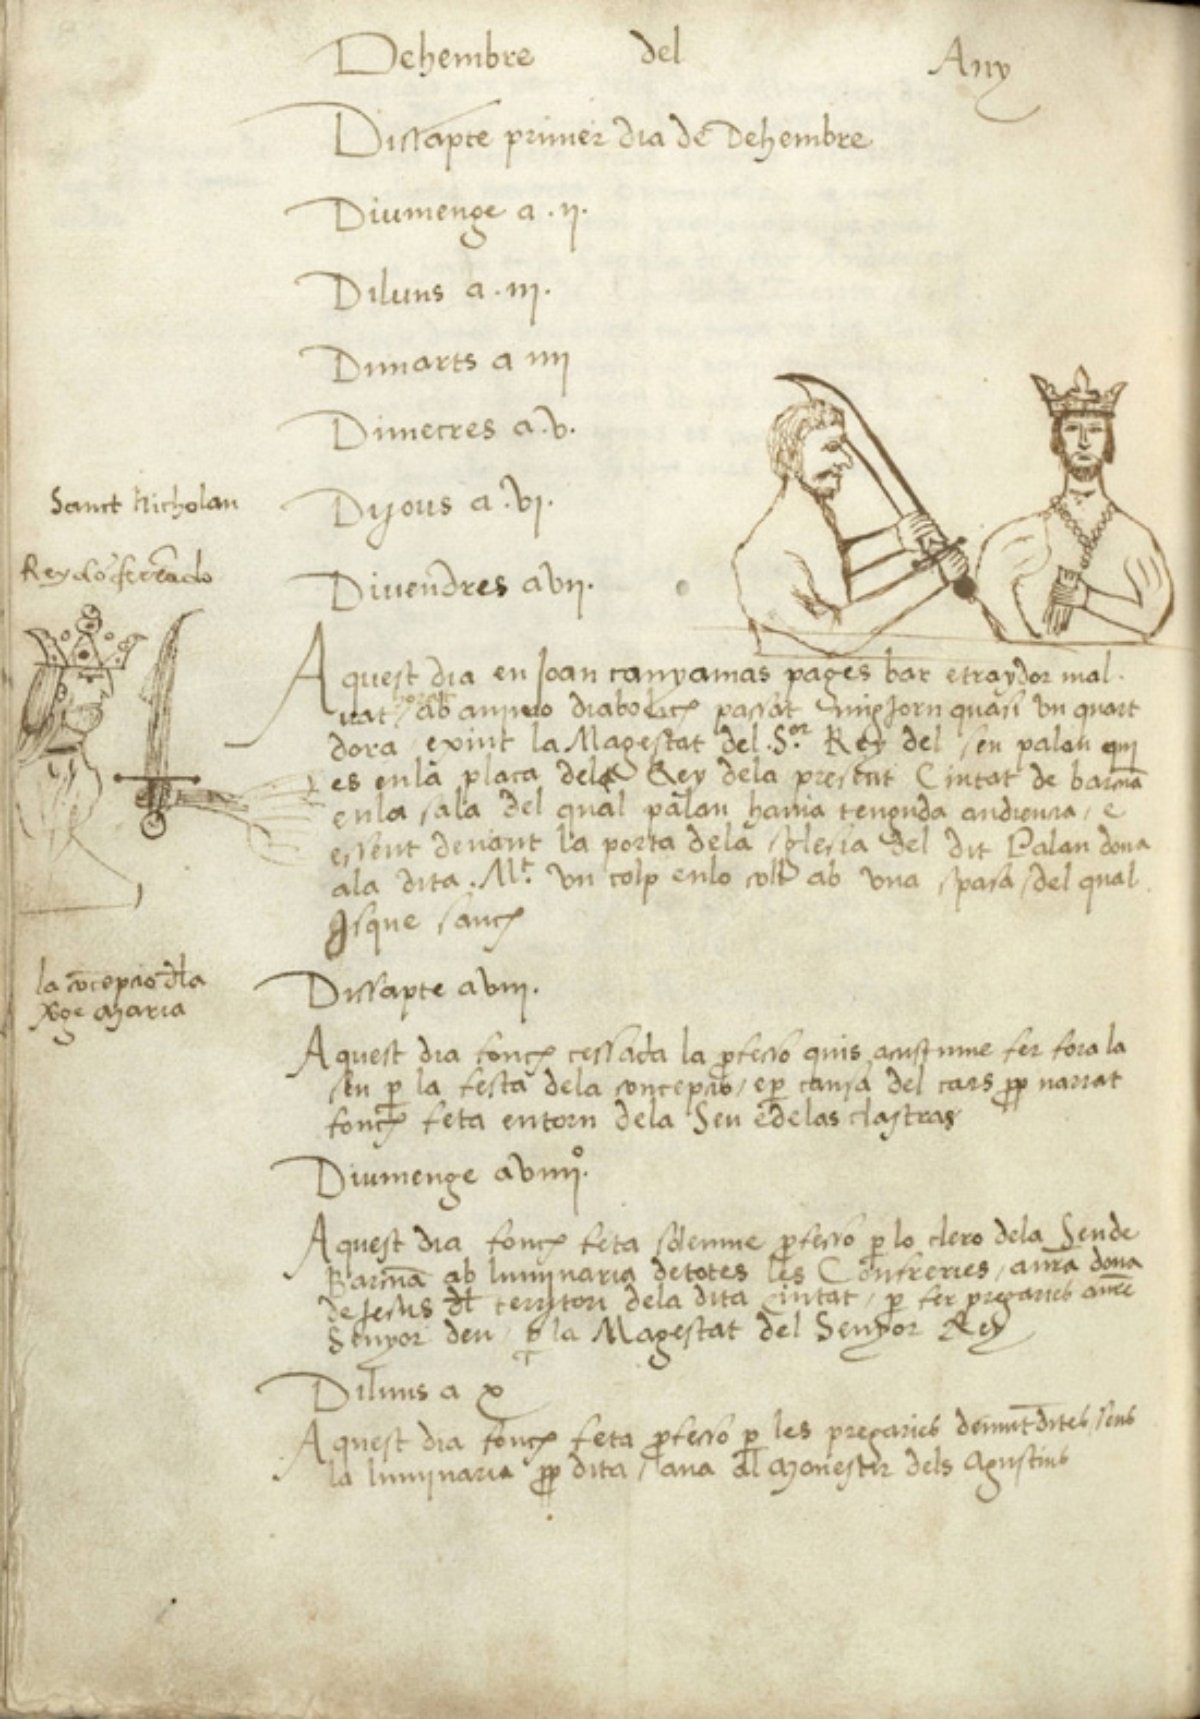 Dehembre del Any
Dissapte primer dia de Dehembre
Diumenge a .ij.
Diluns a .iij.
Dimarts a iiij
Dimecres a .v.
Sanct Nicholau
Dijous a .vj.
Rey dō ferrādo
Divendres a vij.
Aquest dia en Joan canyamas pages bar e traydor mal
vat ab animo diabolich passat mig jorn quasi vn quart
dora / exint la Magestat del S.or Rey del seu palau qui
es en la plaça del Rey de la present Ciutat de barcnā
en la sala del qual palau havia tenguda audiencia / e
essent devant la porta de la sglesia del dit Palau dona
a la dita .Mt. vn colp en lo coll ab vna spasa / del qual
isque sanch
la cōcepcio dla
vge Maria
Dissapte a viij.
Aquest dia fonch cessada la pfesso quis acustume fer fora la
seu p la festa de la concepcio / e p causa del cars pp narrat
fonch feta entorn de la Seu e de las clastras
Diumenge a viiijº.
Aquest dia fonch feta solemne pfesso p lo clero de la Seu de
Barcnā ab luminaria de totes les Confreries / a nrā dona
de Jesus dl territori de la dita Ciutat / p fer pregaries a nrē
Senyor deu / p la Magestat del Senyor Rey
Diluns a x
Aquest dia fonch feta pfesso p les pregaries demūtdites / sens
la luminaria pp dita / ana al Monestir dels Agustins